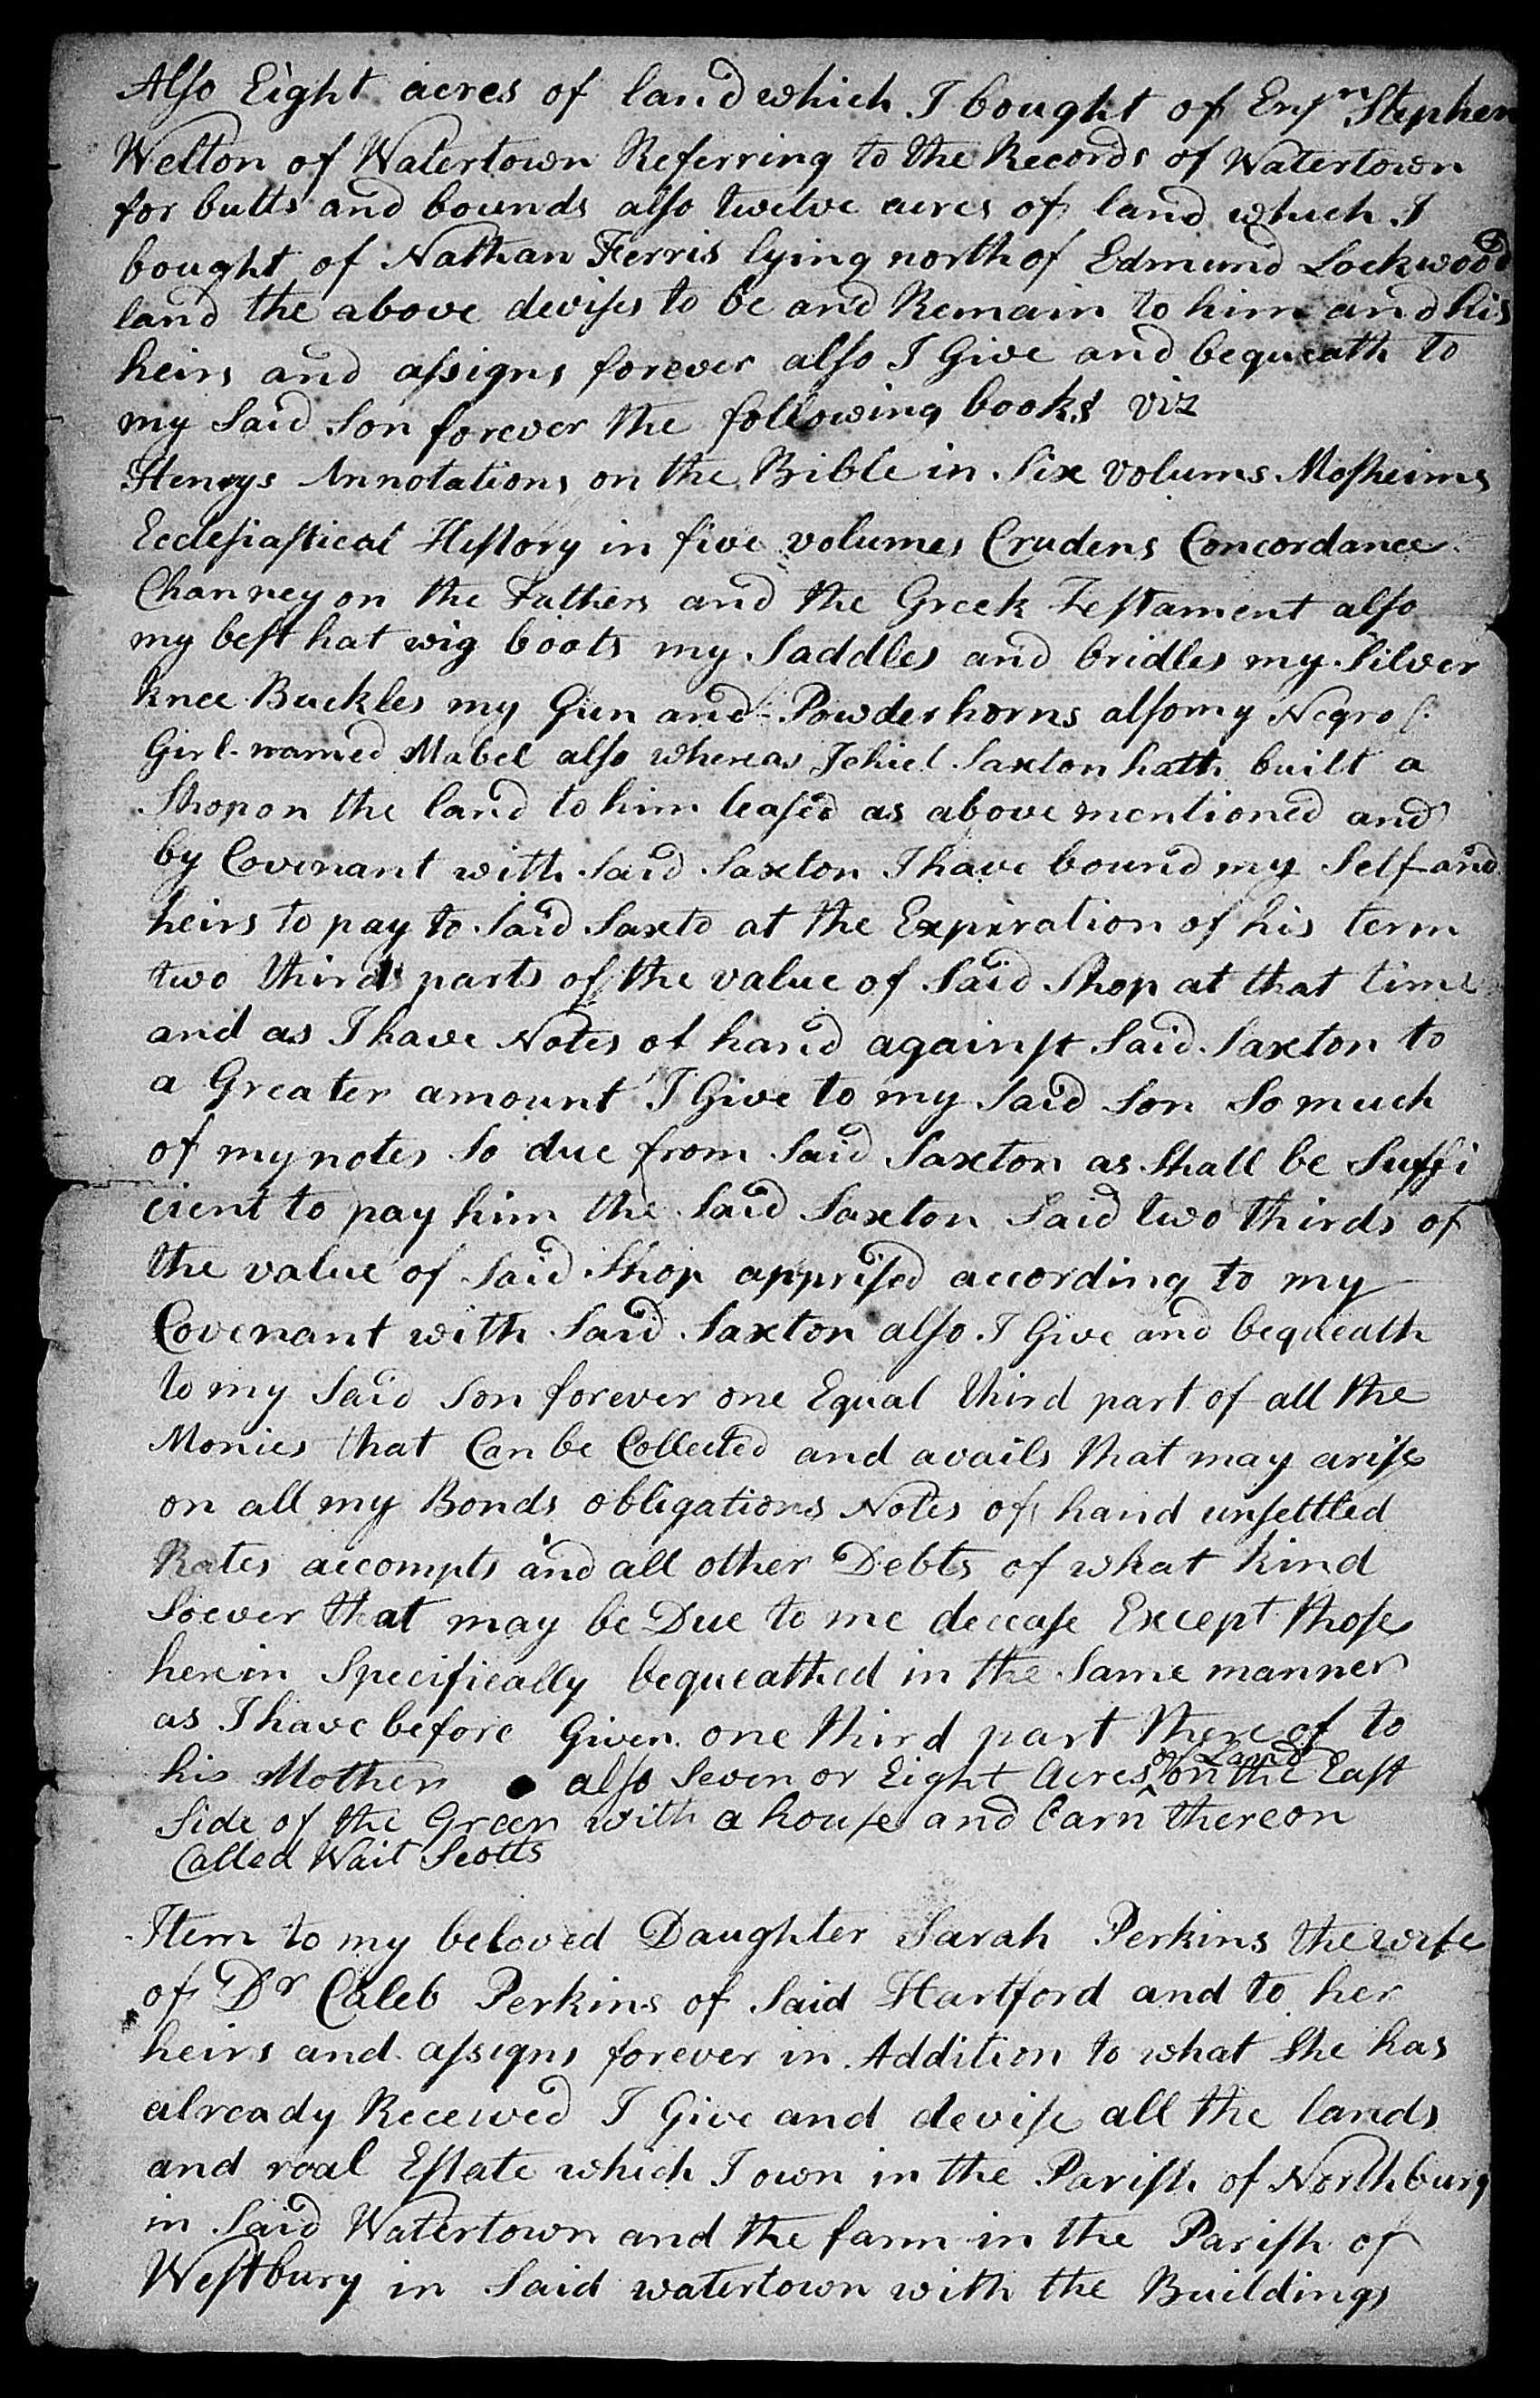 Also Eight acres of land which I bought of Ensn Stephen
Welton of Watertown Referring to the Records of Watertown
for butts and bounds also twelve acres of land which I
bought of Nathan Ferris lying north of Edmund Lockwood
land the above devises to be and Remain to him and his
heirs and assigns forever also I Give and bequeath to
my Said Son forever the following books viz
Henrys Annotations on the Bible in Six volums Mosheims
Ecclesiastical History in five volumes Crudens Concordance
Channey on the Fathers and the Greek Testament also
my best hat wig boots my Saddles and bridles my Silver
knee Buckles my Gun and Powder horns also my Negro
Girl named Mabel also whereas Jehiel Saxton hath built a
Shop on the land to him leased as above mentioned and
by Covenant with Said Saxton I have bound my Self and
heirs to pay to Said Saxto at the Expiration of his term
two thirds parts of the value of Said Shop at that time
and as I have Notes of hand against Said Saxton to
a Greater amount I Give to my Said Son So much
of my notes So due from Said Saxton as Shall be Suffi
cient to pay him the Said Saxton Said two thirds of
the value of Said Shop apprised according to my
Covenant with Said Saxton also I Give and bequeath
to my Said Son forever one Equal third part of all the
Monies that Can be Collected and avails that may arise
on all my Bonds obligations Notes of hand unsettled
Rates accompts and all other Debts of what kind
Soever that may be Due to me decease Except those
herein Specifically bequeathed in the Same manner
as I have before Given one third part there of to
his Mother also Seven or Eight Acres of Land on the East
Side of the Green with a house and barn thereon
Called Wait Scotts
Item to my beloved Daughter Sarah Perkins the wife
of Dr Caleb Perkins of Said Hartford and to her
heirs and assigns forever in Addition to what She has
already Received I Give and devise all the lands
and real Estate which I own in the Parish of Northbury
in Said Watertown and the farm in the Parish of
Westbury in Said watertown with the Buildings